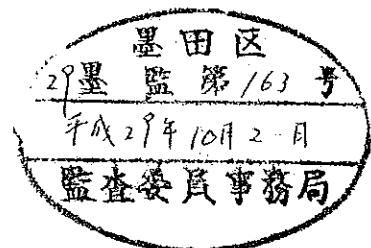 墨田区
29墨監第163号
平成29年10月2日
監査委員事務局